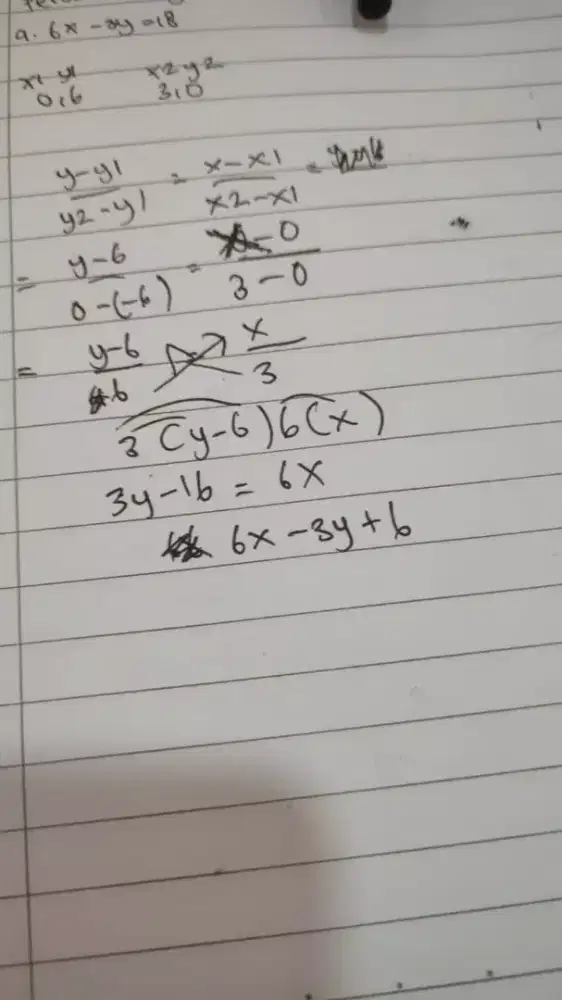 a. 6x - 3y = 18
x1 y1 x2 y2
0,6 3,0
y-y1 / y2-y1 = x-x1 / x2-x1 =
= y-6 / 0-(-6) = -0 / 3-0
= y-6 / 6 x / 3
3(y-6) 6(x)
3y-16 = 6x
6x-3y+6